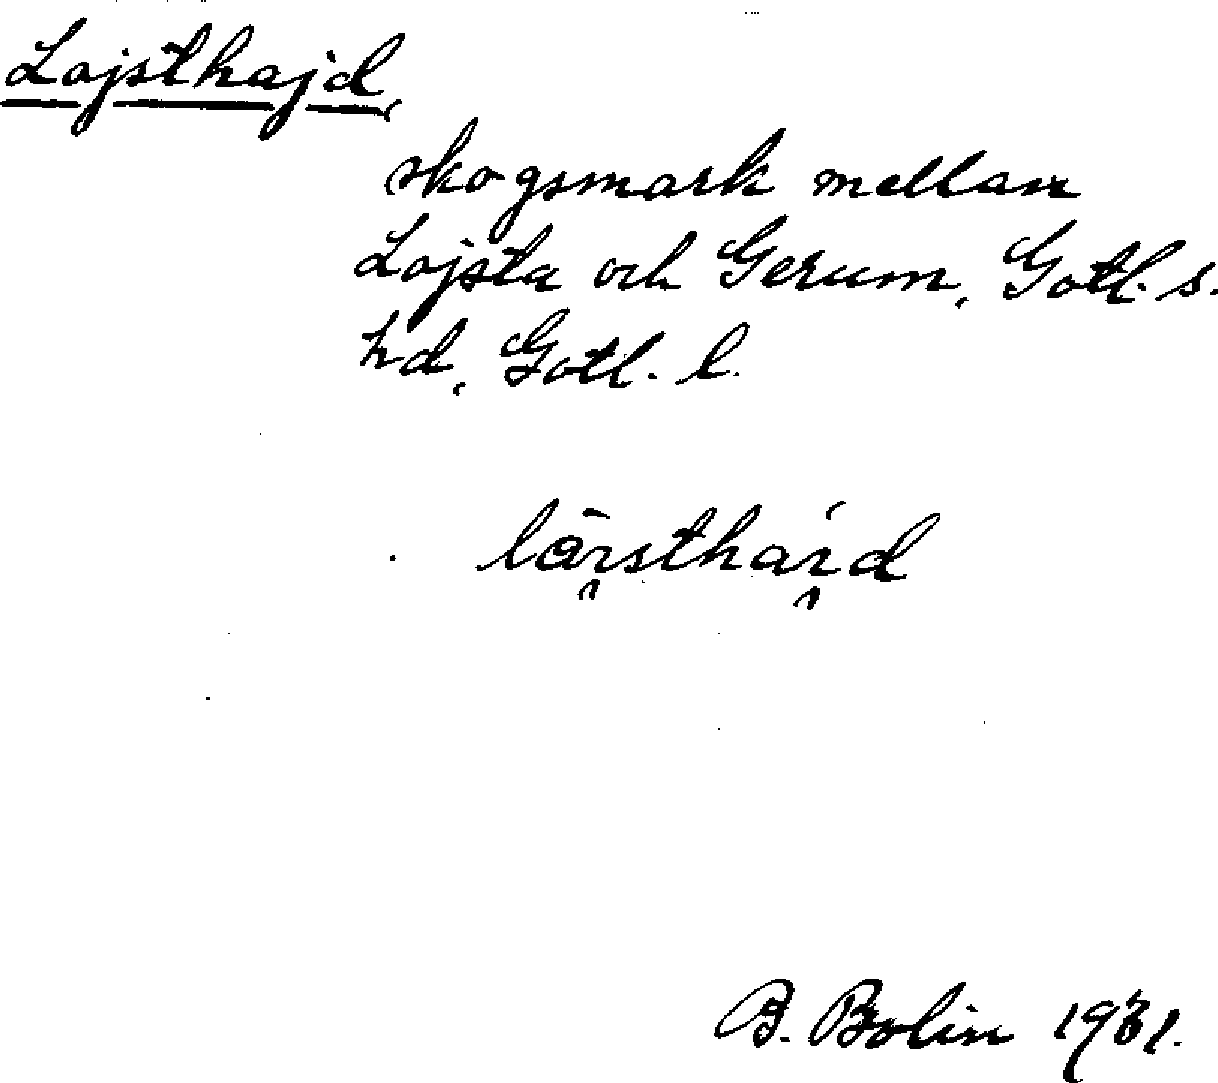 Lojsthajd,
skogsmark mellan
Lojsta och Gerum, Gotl. s.
hd, Gotl. l.
B. Bolin 1931.